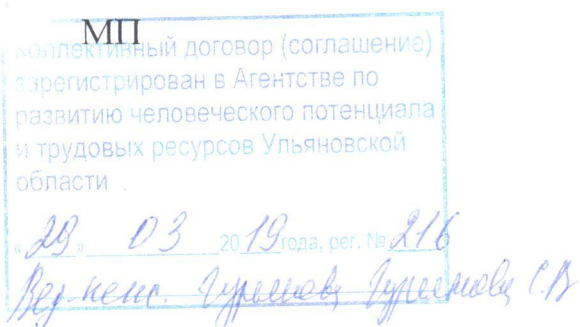 МП
Коллективный договор (соглашение)
зарегистрирован в Агентстве по
развитию человеческого потенциала
и трудовых ресурсов Ульяновской
области
«29» 03 2019 года, рег. № 216
С.В